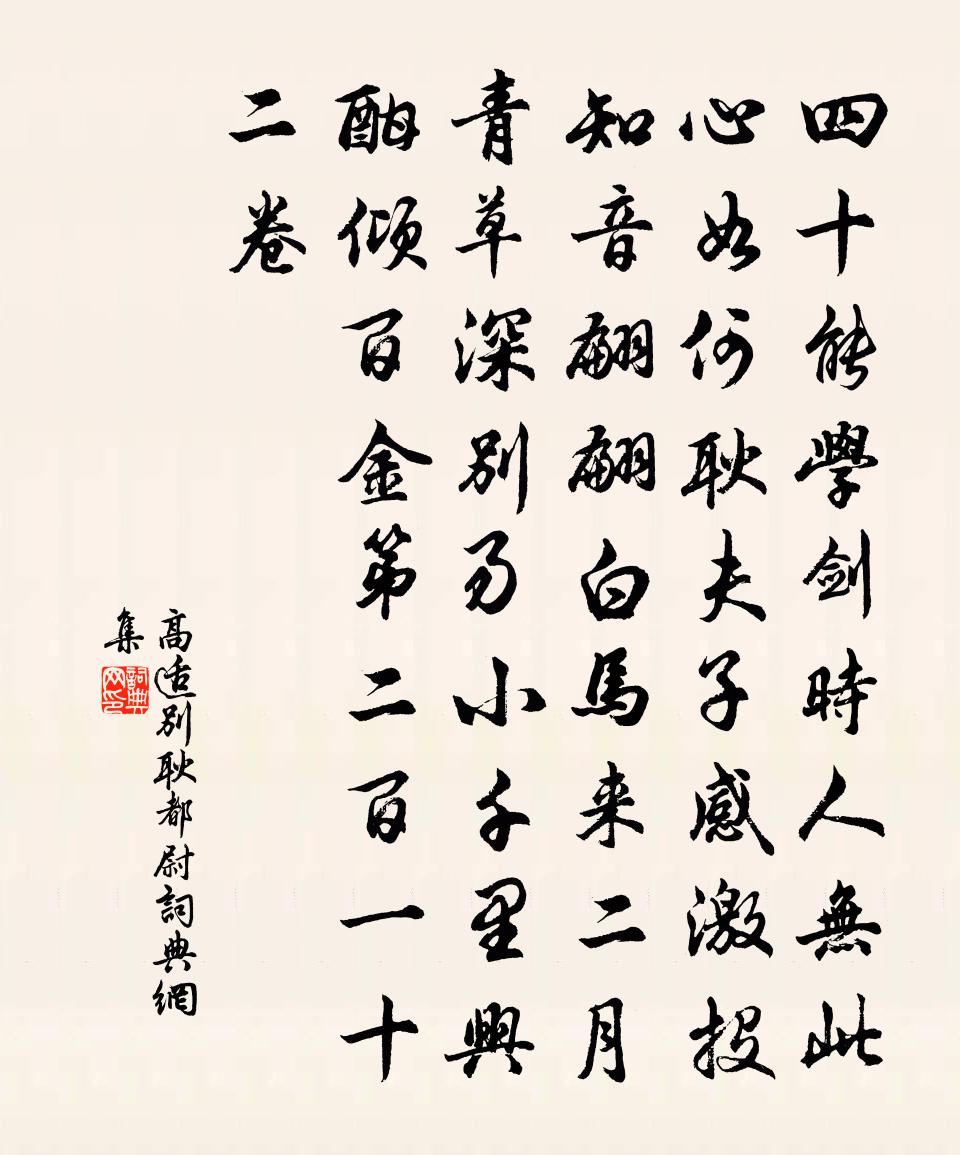 四十能學劍時人無此
心如何耿夫子感激投
知音翩翩白馬来二月
青草深別易小千里興
酣傾百金第二百一十
二卷
高适別耿都尉詞典網
集
詞典网印